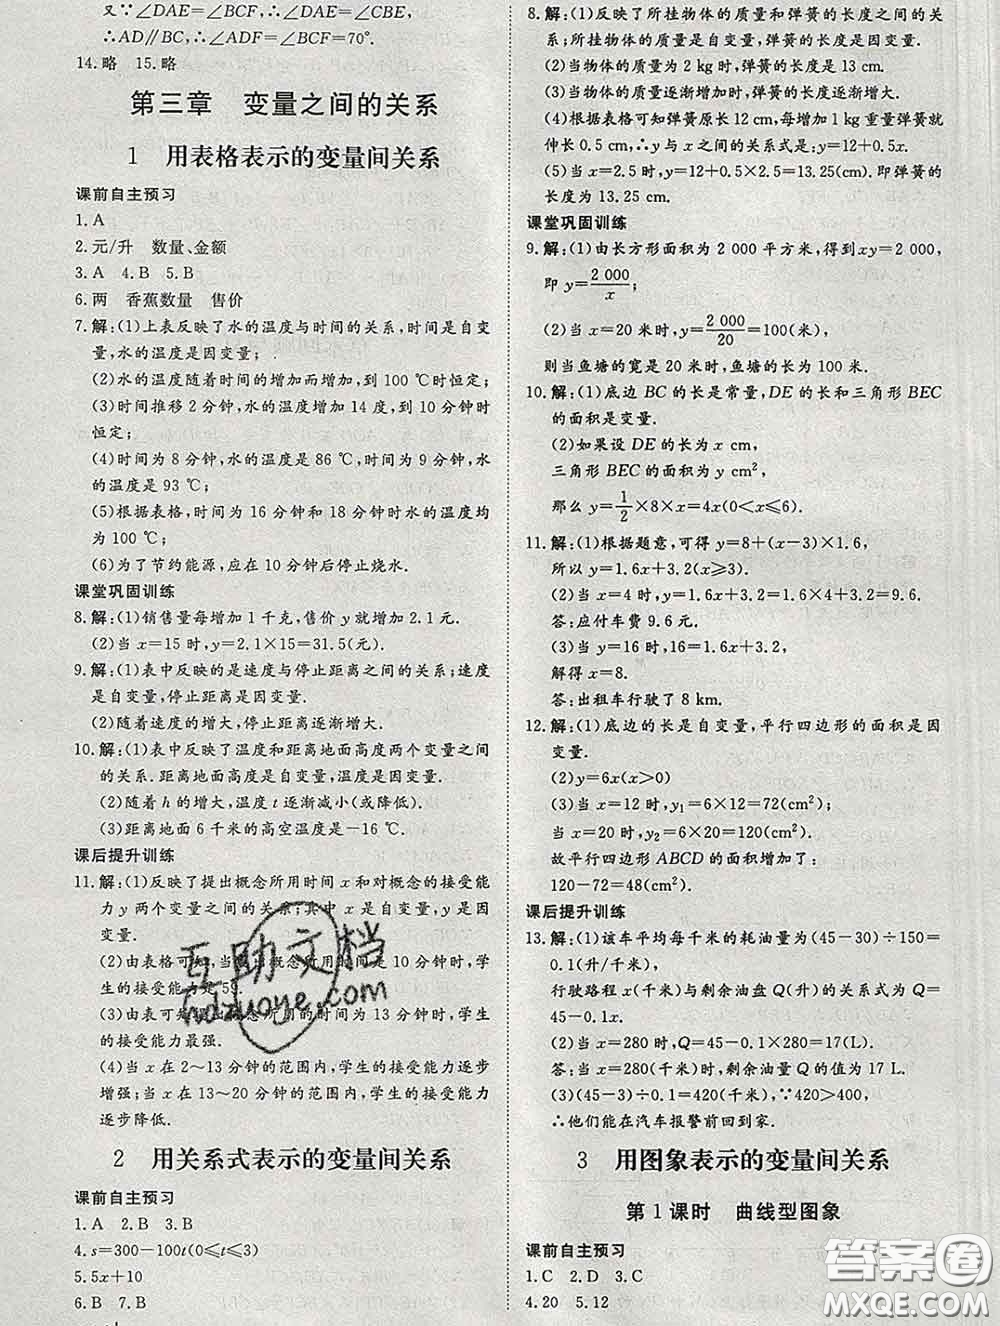 又∵∠DAE=∠BCF,∴∠DAE=∠CEB,
∴AD∥BC,∴∠ADF=∠BCF=70°.
14.略　15.略
第三章　变量之间的关系
1　用表格表示的变量间关系
课前自主预习
1.A
2.元/升　数量、金额
3.A　4.B　5.B
6.两　香蕉数量　售价
7.解:(1)上表反映了水的温度与时间的关系,时间是自变
量,水的温度是因变量;
(2)水的温度随着时间的增加而增加,到 100 ℃时恒定;
(3)时间推移 2 分钟,水的温度增加 14 度,到 10 分钟时
恒定;
(4)时间为 8 分钟,水的温度是 86 ℃,时间为 9 分钟,水
的温度是 93 ℃;
(5)根据表格,时间为 16 分钟和 18 分钟时水的温度均
为 100 ℃;
(6)为了节约能源,应在 10 分钟后停止烧水.
课堂巩固训练
8.解:(1)销售量每增加 1 千克,售价 y 就增加 2.1 元.
(2)当 x=15 时,y=2.1×15=31.5(元).
9.解:(1)表中反映的是速度与停止距离之间的关系;速度
是自变量,停止距离是因变量.
(2)随着速度的增大,停止距离逐渐增大.
10.解:(1)表中反映了温度和距离地面高度两个变量之间
的关系.距离地面高度是自变量,温度是因变量.
(2)随着 h 的增大,温度 t 逐渐减小(或降低).
(3)距离地面 6 千米的高空温度是-16 ℃.
课后提升训练
11.解:(1)反映了提出概念所用时间 x 和对概念的接受能
力 y 两个变量之间的关系;其中 x 是自变量,y 是因
变量.
(2)由表格可知,当提出概念所用时间是 10 分钟时,学
生的接受能力是 59.
(3)由表可知当提出概念所用的时间为 13 分钟时,学生
的接受能力最强.
(4)当 x 在 2～13 分钟的范围内,学生的接受能力逐步
增强;当 x 在 13～20 分钟的范围内,学生的接受能力
逐步降低.
2　用关系式表示的变量间关系
课前自主预习
1.A　2.B　3.B
4.s=300-100t(0⩽t⩽3)
5.5x+10
6.B　7.B
8.解:(1)反映了所挂物体的质量和弹簧的长度之间的关
系;所挂物体的质量是自变量,弹簧的长度是因变量.
(2)当物体的质量为 2 kg 时,弹簧的长度是 13 cm.
(3)当物体的质量逐渐增加时,弹簧的长度逐渐增大.
(4)根据表格可知弹簧原长 12 cm,每增加 1 kg 重量就
伸长 0.5 cm,∴y 与 x 之间的关系式是:y=12+0.5x.
(5)当 x=2.5 时,y=12+0.5×2.5=13.25(cm).即弹簧的
长度为 13.25 cm.
课堂巩固训练
9.解:(1)由长方形面积为 2 000 平方米,得到xy=2 000,
即 y=2 000/x;
(2)当 x=20 米时,y=2 000/20=100(米),
则当鱼塘的宽是 20 米时,鱼塘的长为 100 米.
10.解:(1)底边 BC 的长是常量,DE 的长和三角形 BEC
的面积是变量.
(2)如果设 DE 的长为 x cm,
三角形 BEC 的面积为 y cm²,
那么 y=1/2×8×x=4x(0<x⩽6).
11.解:(1)根据题意,可得 y=8+(x-3)×1.6,
所以 y=1.6x+3.2(x⩾3).
(2)当 x=4 时,y=1.6x+3.2=1.6×4+3.2=9.6.
答:应付车费 9.6 元.
(3)当 y=16 时,16=1.6x+3.2,
解得 x=8.
答:出租车行驶了 8 km.
12.解:(1)底边的长是自变量,平行四边形的面积是因
变量.
(2)y=6x(x>0)
(3)当 x=12 时,y₁=6×12=72(cm²)
当 x=20 时,y₂=6×20=120(cm²).
故平行四边形 ABCD 的面积增加了:
120-72=48(cm²).
课后提升训练
13.解:(1)该车平均每千米的耗油量为(45-30)÷150=
0.1(升/千米),
行驶路程 x(千米)与剩余油盘 Q(升)的关系式为 Q=
45-0.1x.
(2)当 x=280(千米)时,Q=45-0.1×280=17(L).
答:当 x=280(千米)时,剩余油量 Q 的值为 17 L.
(3)(45-3)÷0.1=420(千米),∵420>400,
∴他们能在汽车报警前回到家.
3　用图象表示的变量间关系
第 1 课时　曲线型图象
课前自主预习
1.C　2.D　3.C
4.20　5.12
互助文档
hdzuoye.com
答案圈
MXQE.COM